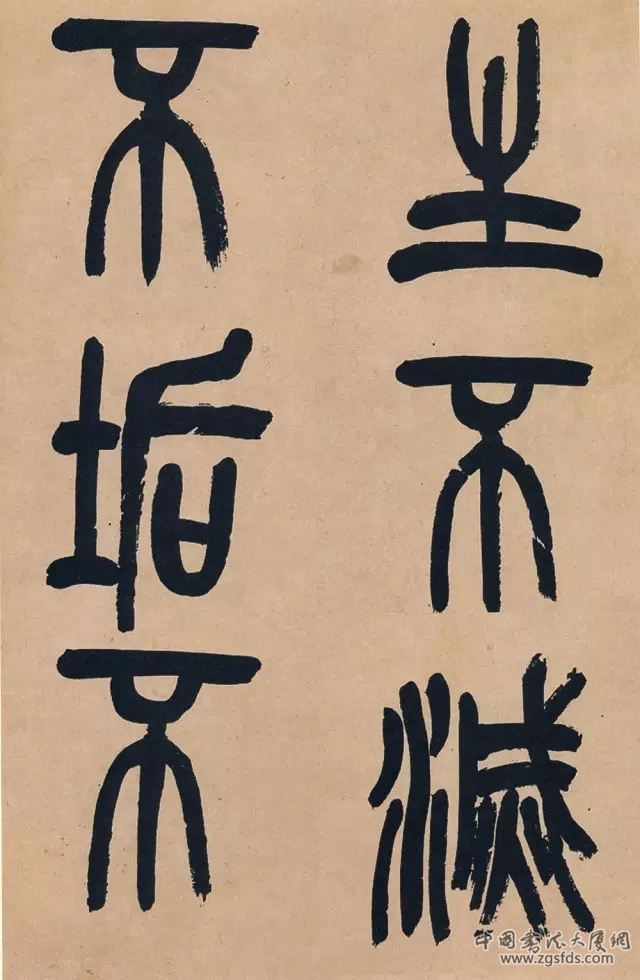 生不滅
不垢不
中国书法大厦网
www.zgsfds.com